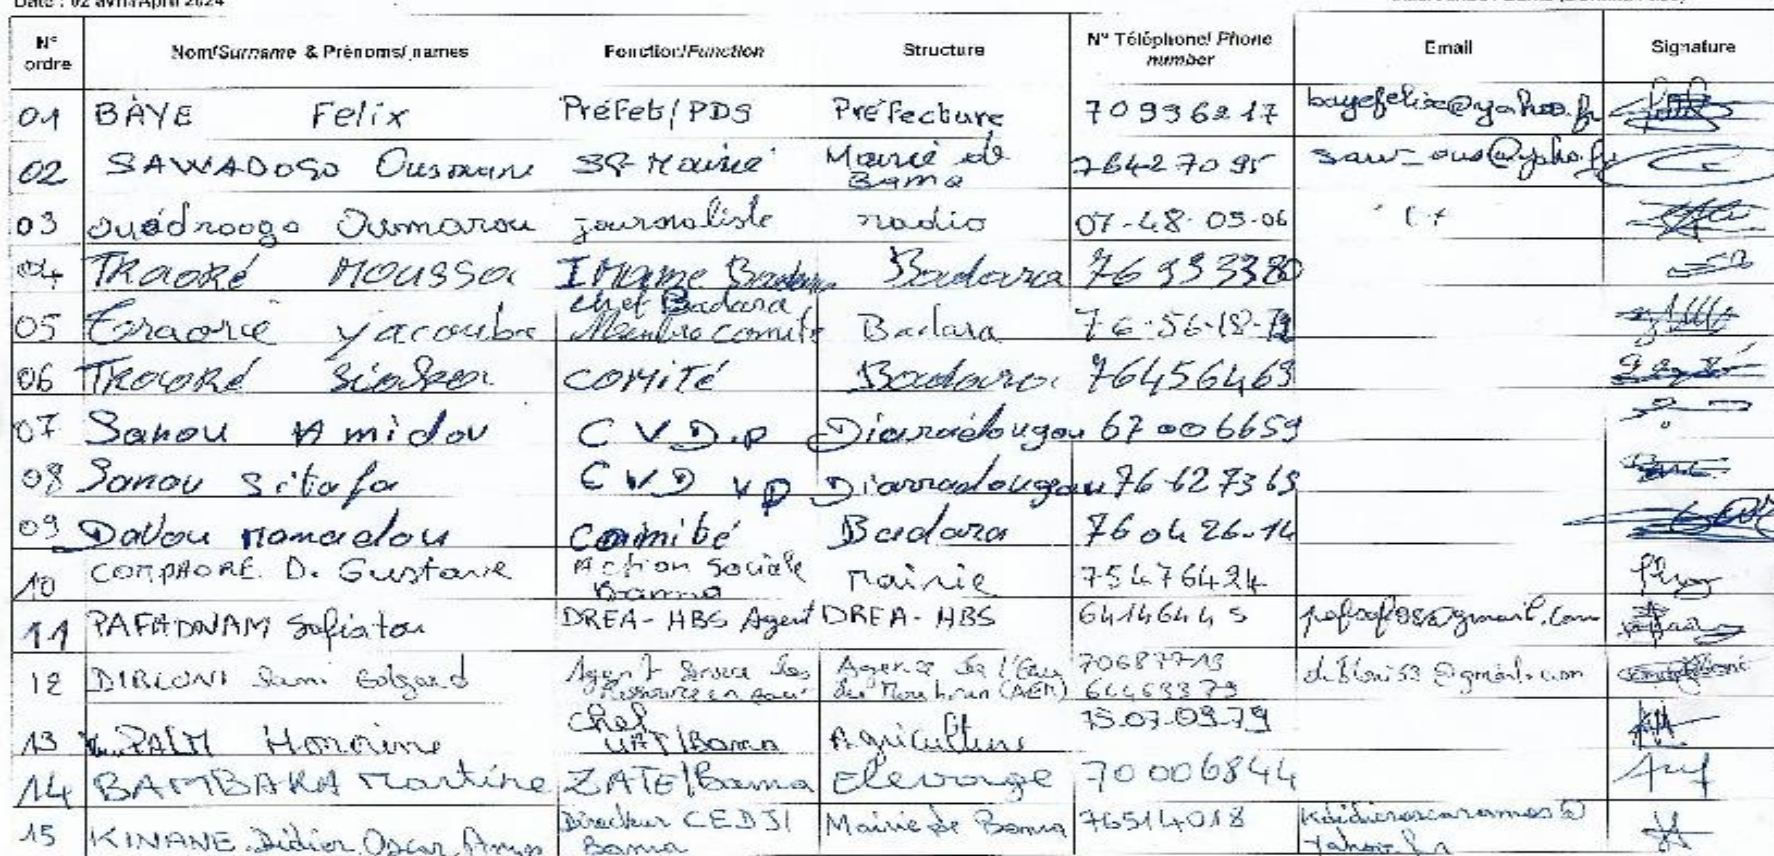 Date : 02 avril/April 2024
N° ordre Nom/Surname & Prénoms/ names Fonction/Function Structure N° Téléphone/ Phone number Email Signature
01 BAYE Felix Préfet/PDS Préfecture 70996217 bayefelix@yahoo.fr
02 SAWADOGO Ousmane SG Mairie Mairie de Bama 76427095
03 ouédraogo Oumarou journaliste radio 07-48-05-06
04 TRAORÉ MOUSSA Imame Badara Badara 76933380
05 Traoré yacouba chef Badara Membre comité Badara 76-56-18-79
06 TRAORÉ COMITÉ Badara 76456469
07 Sanou Amidou CVD.P Diarradougou 67006659
08 Sanou Sitafa CVD VP Diarradougou 76127369
09 Davou mamadou Commité Badara 760426-14
10 COMPAORE D. Gustave Action Sociale Bama Mairie 75476424
11 PAFADNAM Safiatou DREA-HBS Agent DREA-HBS 64146445
12 DIBLONI Agent Service des Ressources en eau Agence de l'Eau du Mouhoun (AEM) 706877-13 64469379
13 PALM Honorine chef UAT/Bama Agriculture 75.07.09.79
14 BAMBARA Martine ZATE/Bama Elevage 70006844
15 KINANE Didier Oscar Amos Directeur CEDJ/ Bama Mairie de Bama 76514018 kdidieroscaramos@ yahoo.fr